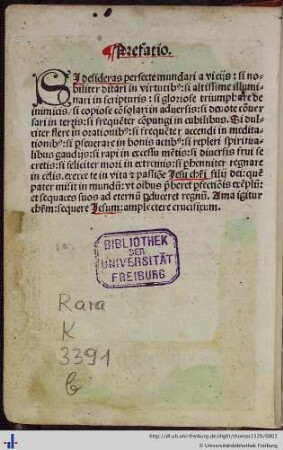 Prefatio.
SI desideras perfecte mundari a vicijs: si no-
biliter ditari in virtutibꝰ: si altissime illumi
nari in scripturis: si gloriose triumphare de
inimicis: si copiose cōsolari in aduersis: si deuote cōuer
sari in terris: si frequēter cōpungi in cubilibus. Si dul
citer flere in orationibꝰ: si frequēter accendi in medita
tionibꝰ: si ꝑseuerare in bonis actibꝰ: si repleri spiritua
libus gaudijs: si rapi in excessū mētis: si diuersis frui se
cretis: si feliciter mori in extremis: si ꝑhenniter regnare
in celis. exerce te in vita ⁊ passiōe Jesu chr̄i filij dei: quē
pater misit in mundū: vt oībus p̄beret ꝑfectiōis exēplū:
et sequaces suos ad eternū ꝑduceret regnū. Ama igitur
chr̄m: sequere Jesum: amplectere crucifixum.
BIBLIOTHEK
DER
UNIVERSITÄT
FREIBURG
Rara
K
3391
b
http://dl.ub.uni-freiburg.de/diglit/thomas1520/0002
© Universitätsbibliothek Freiburg